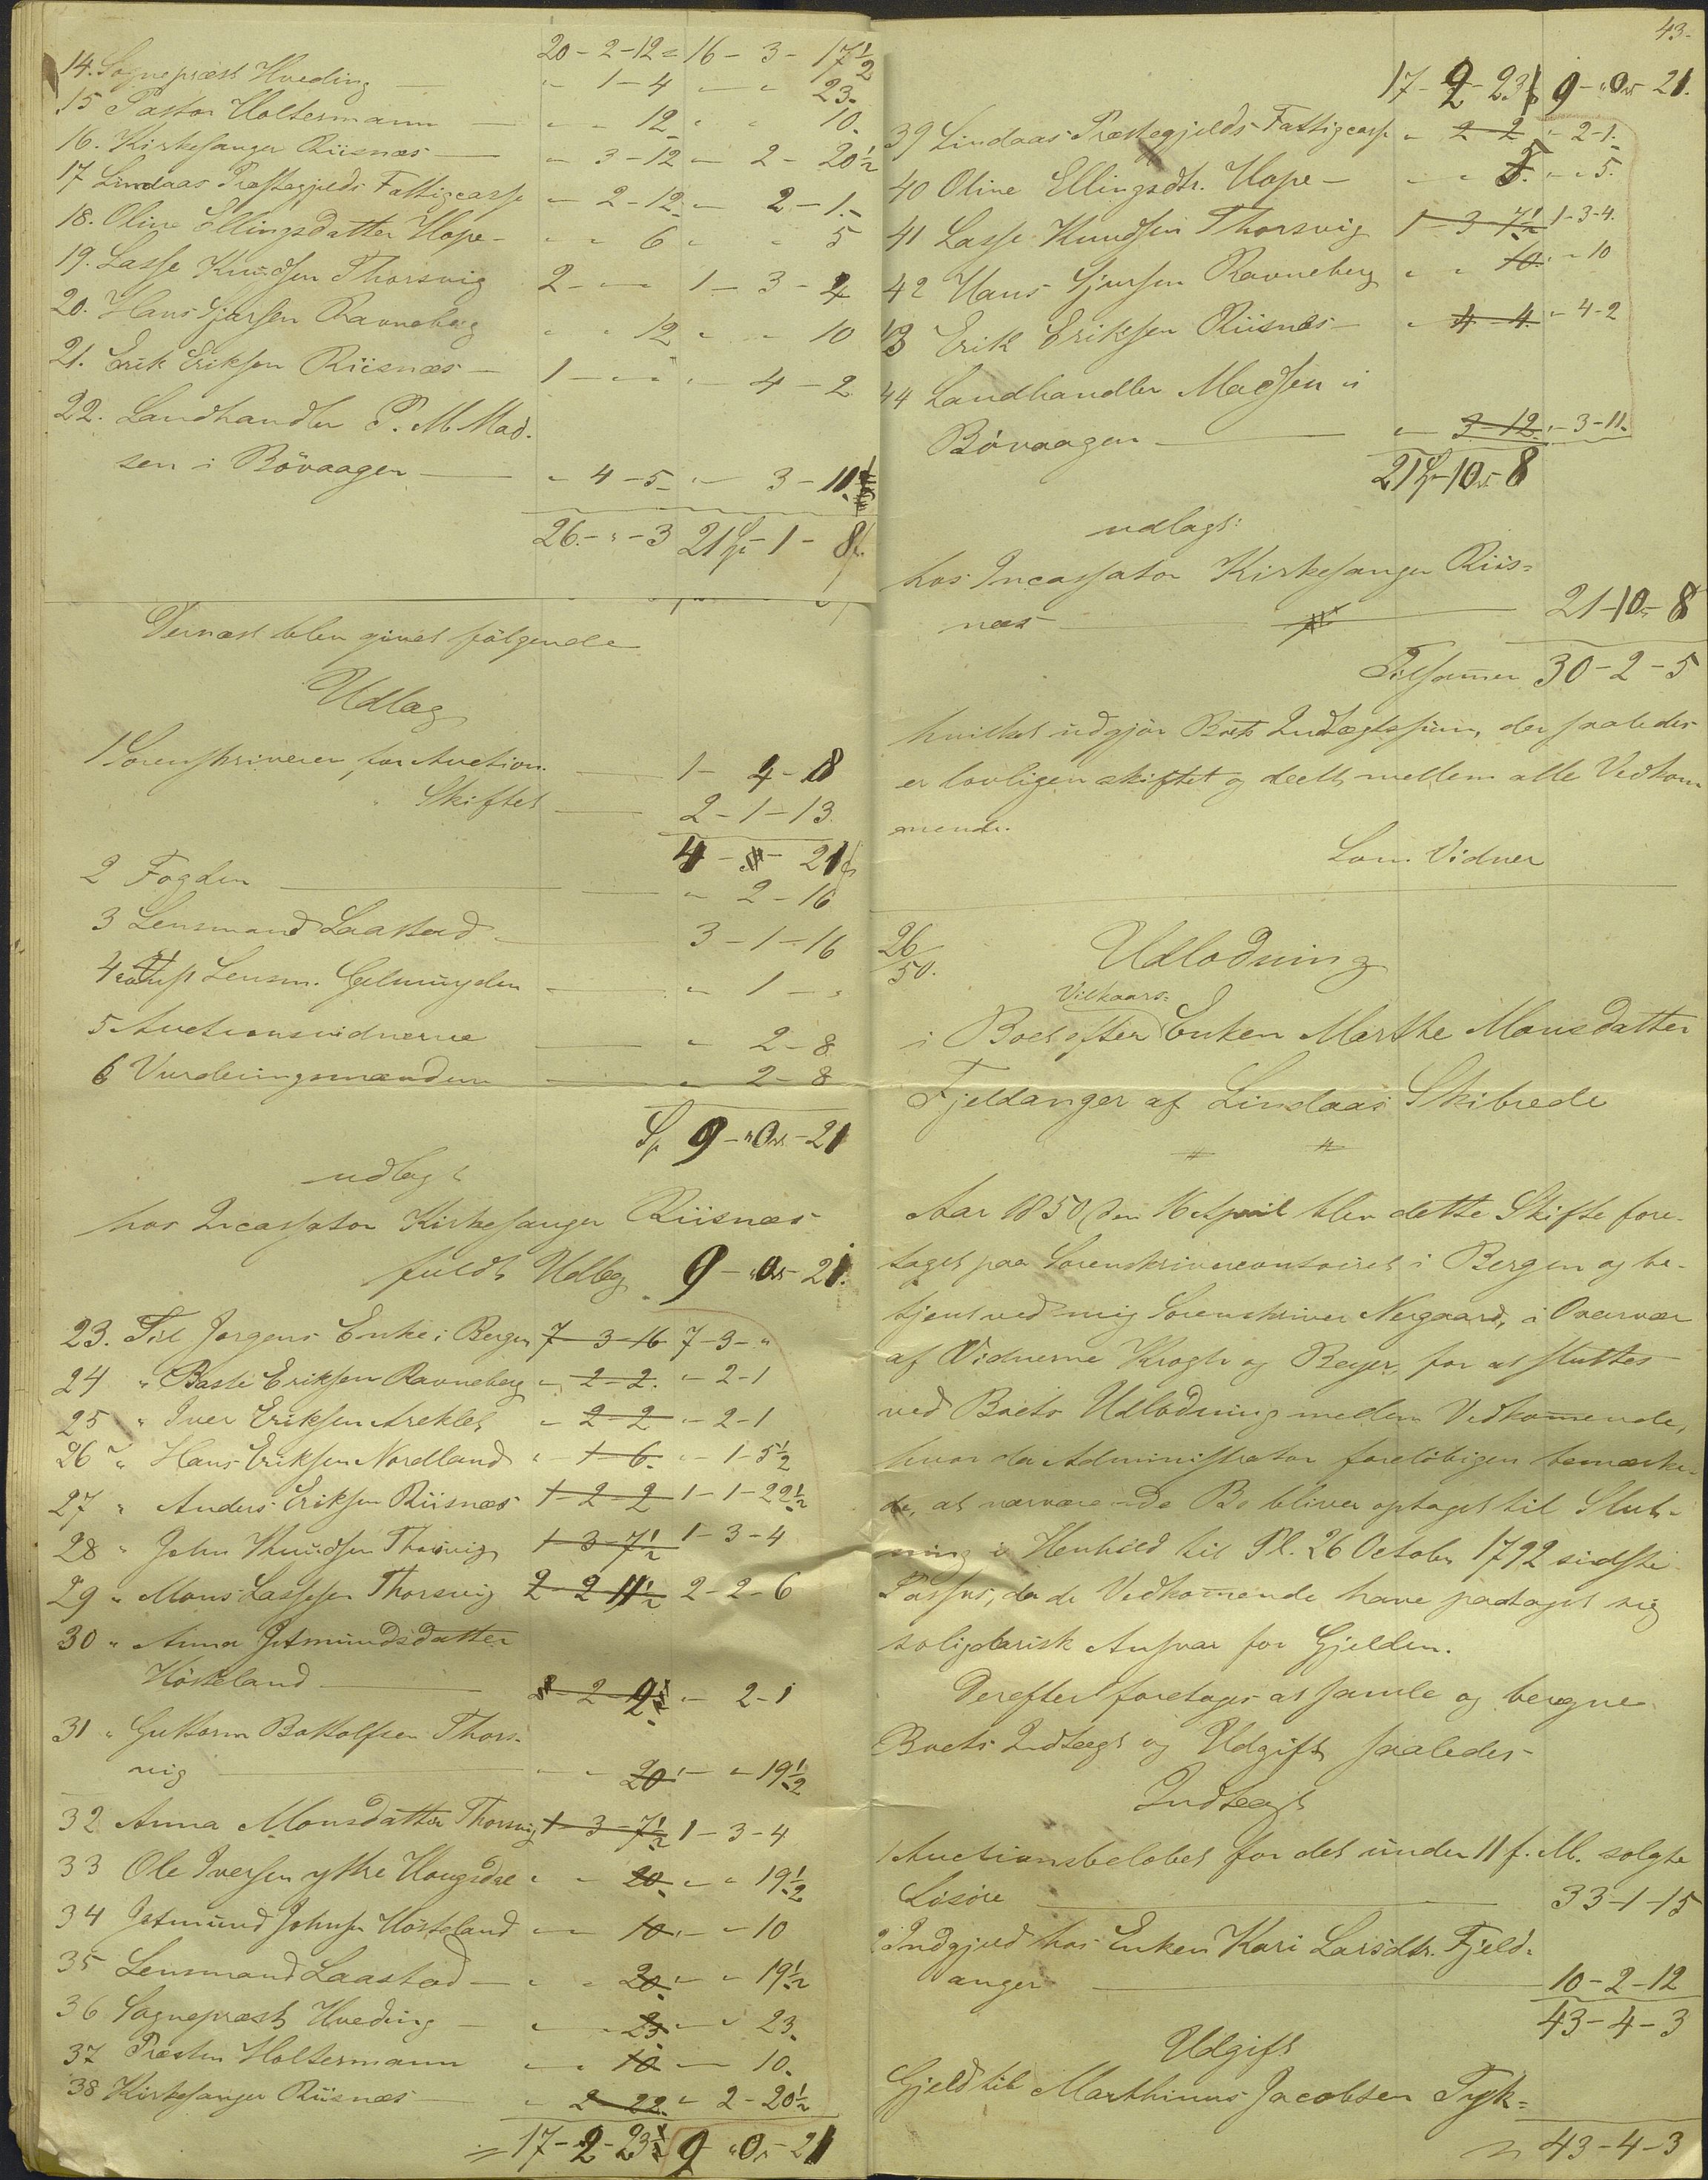 20 - 2 - 12 = 16 - 3 - 17½
14. Sognepræst Hveding — " 1 - 4 " " 23.
15 Pastor Holtermann — " " 12 " " 10.
16. Kirkesanger Riisnæs — " 3 - 12 " 2 - 20½
17 Lindaas Præstegjelds Fattigcasse " 2 - 12 " 2 - 1.
18. Oline Ellingsdatter Hope - " " 6 " " 5
19. Lasse Knudsen Thorsvig 2 - " " 1 - 3 - 4
20. Hans Sjursen Ravneberg " " 12 " " 10
21. Erik Eriksen Riisnæs — 1 - " " " 4 - 2
22. Landhandler P. M. Mad-
sen i Bövaagen — " 4 - 5 " 3 - 11.
26 - " - 3 21 Sp - 1 - 8 s.
Dernæst blev givet fölgende
Udlæg
1 Sorenskriveren for Auction. — 1 - 4 - 8
" Skiftet — 2 - 1 - 13
4 - " - 21 s
2 Fogden — " 2 - 16
3 Lensmand Laastad — 3 - 1 - 16
4 Lensm. Gelmuyden — " 1 - "
5 Auctionsvidnerne — " 2 - 8
6 Vurderingsmændene — " 2 - 8
Sp 9 - "Ort - 21
udlagt
hos Incassator Kirkesanger Riisnæs
fuldt Udlæg 9 - "Ort - 21.
23. Til Jørgens Enke i Bergen 7 - 3 - 16 7 - 3 - "
24 " Baste Eriksen Ravneberg " 2 - 2. " 2 - 1
25 " Iver Eriksen Areklet " 2 - 2 " 2 - 1
26 " Hans Eriksen Nordland " 1 - 6. " 1 - 5½
27 " Anders Eriksen Riisnæs 1 - 2 - 2 1 - 1 - 22½
28 " John Knudsen Thorsvig 1 - 3 - 7½ 1 - 3 - 4
29 " Mons Lassesen Thorsvig 2 - 2 11½ 2 - 2 - 6
30 " Anna Jetmundsdatter
Hösteland — " - 2 - 2½ " 2 - 1
31 " Guttorm Bottolfsen Thors-
vig — " " 20 " " 19½
32 Anna Monsdatter Thorsvig 1 - 3 - 7½ 1 - 3 - 4
33 Ole Iversen yttre Hougsdal " " 20 " " 19½
34 Jetmund Johnsen Hösteland " " 10 " " 10
35 Lensmand Laastad — " " 20 " " 19½
36 Sognepræst Hveding — " " 23 " " 23.
37 Præsten Holtermann " " 10 " " 10.
38 Kirkesanger Riisnæs — " 2 22 " 2 - 20½
= 17 - 2 - 23½ 9 "Ort - 21
43.
17 - 2 - 23½ 9 - "Ort - 21.
39 Lindaas Præstegjelds Fattigcasse " 2 2 " 2 - 1.
40 Oline Ellingsdtr. Hope - " " 5. " " 5.
41 Lasse Knudsen Thorsvig 1 - 3 7½ 1 - 3 - 4.
42 Hans Sjursen Ravneberg " " 10. " " 10
43 Erik Eriksen Riisnæs - " 4 - 4. " 4 - 2
44 Landhandler Madsen i
Bövaagen — " 3 - 12. " 3 - 11.
21 Sp - 1 Ort - 8
udlagt:
hos Incassator Kirkesanger Riis=
næs — 21 - 1 Ort - 8
Tilsammen 30 - 2 - 5
hvilket udgjör Boets Indtægtssum, der saaledes
er lovligen skiftet og deelt mellem alle Vedkom
mende.
Som Vidner
26/50. Udlodning
Vilkaars=
i Boet efter Enken Marthe Monsdatter
Fjeldanger af Lindaas Skibrede
Aar 1850 den 16 April blev dette Skifte fore-
taget paa Sorenskrivercontoiret i Bergen og be-
tjent ved mig Sorenskriver Nergaard, i Overvær
af Vidnerne Krogh og Beyer, for at sluttes
ved Boets Udlodning mellem Vedkommende,
hvor da Administrator foreløbigen bemærke-
de, at nærværende Bo bliver optaget til Slut-
ning i Henhold til Pl. 26 October 1792 sidste
Passus, da de Vedkommende have paataget sig
solidarisk Ansvar for Gjelden.
Derefter foretoges at samle og beregne
Boets Indtægt og Udgift saaledes
Indtægt
1 Auctionsbeløbet for det under 11 f. M. solgte
Løsøre — 33 - 1 - 15
2 Indgjeld hos Enken Kari Larsdtr. Fjeld-
anger — 10 - 2 - 12
43 - 4 - 3
Udgift
Gjeld til Marthinus Jacobsen Tyk=
43 - 4 - 3